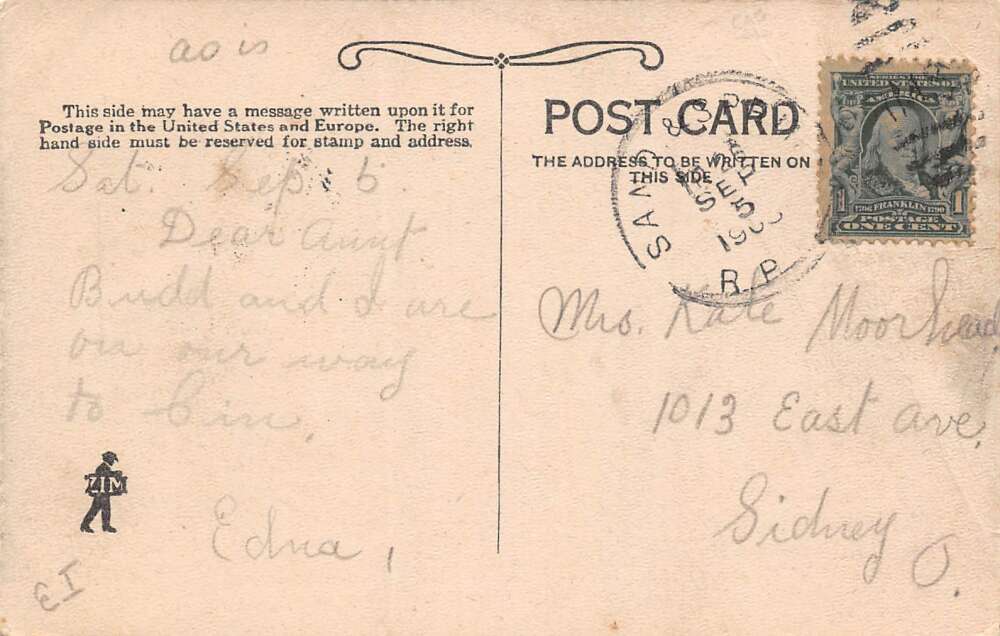 This side may have a message written upon it for
Postage in the United States and Europe. The right
hand side must be reserved for stamp and address.
Sat. Sep. 5
Dear Aunt
Budd and I are
on our way
to Cin.
Edna,
ZIM
POST CARD
THE ADDRESS TO BE WRITTEN ON
THIS SIDE
SAND
SEP
5
R.P.
SERIES 1902
UNITED STATES OF
AMERICA
1706 FRANKLIN 1790
POSTAGE
1 ONE CENT 1
Mrs. Kate Moorhead,
1013 East Ave,
Sidney
O.